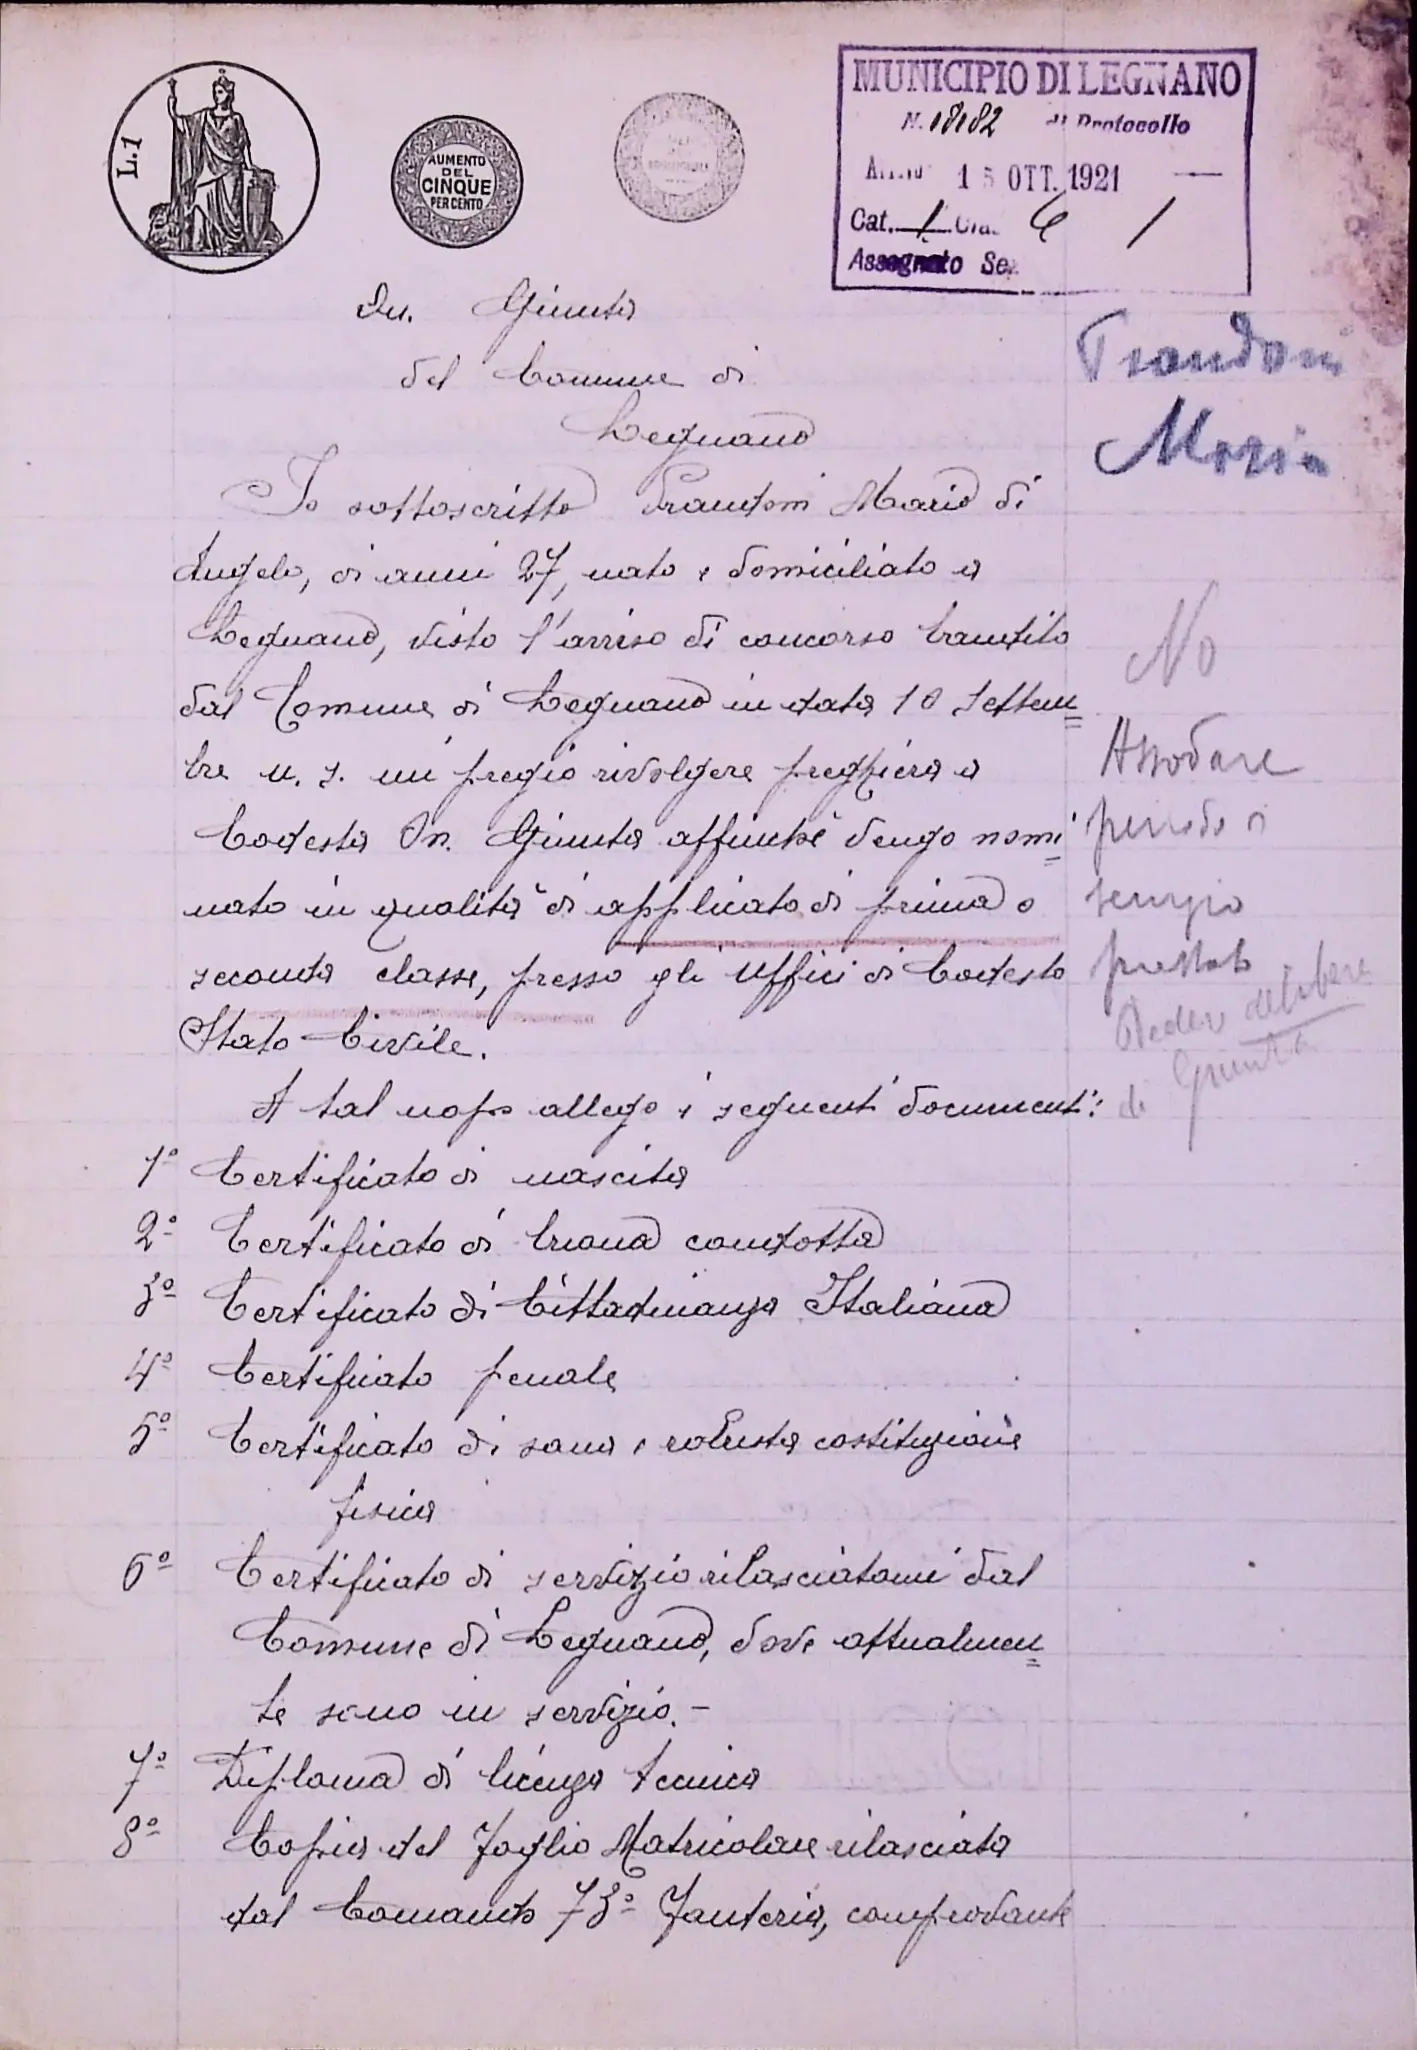 L.1
AUMENTO
DEL
CINQUE
PER CENTO
MUNICIPIO DI LEGNANO
N. 18182 di Protocollo
15 OTT. 1921
Cat. 1 Cla. 6 1
Assegnato Sez.
On. Giunta
del Comune di
Legnano
Prandoni
Mario
Io sottoscritto Prandoni Mario di
Angelo, di anni 27, nato e domiciliato a
Legnano, visto l'avviso di concorso bandito
dal Comune di Legnano in data 10 Settem
bre u. s. mi pregio rivolgere preghiera a
Codesta On. Giunta affinchè venga nomi
nato in qualità di applicato di prima o
seconda classe, presso gli Uffici di Codesto
Stato Civile.
A tal uopo allego i seguenti documenti:
1º Certificato di nascita
2º Certificato di buona condotta
3º Certificato di Cittadinanza Italiana
4º Certificato penale
5º Certificato di sana e robusta costituzione
fisica
6º Certificato di servizio rilasciatomi dal
Comune di Legnano, dove attualmen
te sono in servizio.-
7º Diploma di licenza tecnica
8º Copia del Foglio Matricolare rilasciata
dal Comando 73º Fanteria, comprovante
No
Assodare
periodo di
servizio
prestato
Vedere delibera
di Giunta